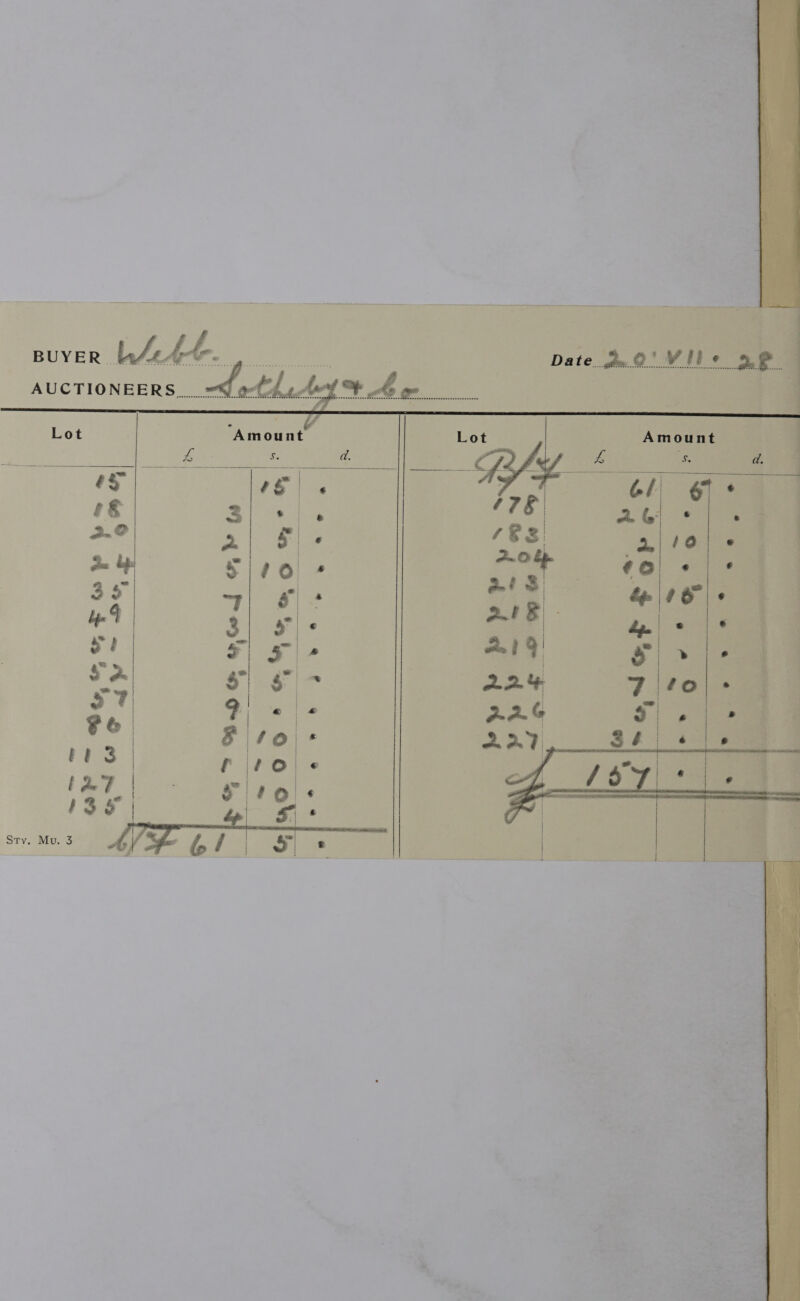 BUYER Date 20' VII • 28
AUCTIONEERS Sotheby & Co
Lot Amount Lot Amount
£ s. d. £ s. d.
15 15 •
18 3 • •
20 2 5 •
24 5 10 •
35 7 5 •
49 3 5 •
51 5 5 •
52 5 5 •
57 9 • •
86 8 10 •
113 1 10 •
127 5 10 •
135 4 5 •
Sty. Mu. 3 C/F 61 5 •
B/F 61 5 •
178 26 • •
183 2 10 •
204 10 • •
213 4 15 •
218 4 • •
219 5 • •
224 7 10 •
226 5 • •
227 31 • •
£ 157 • •